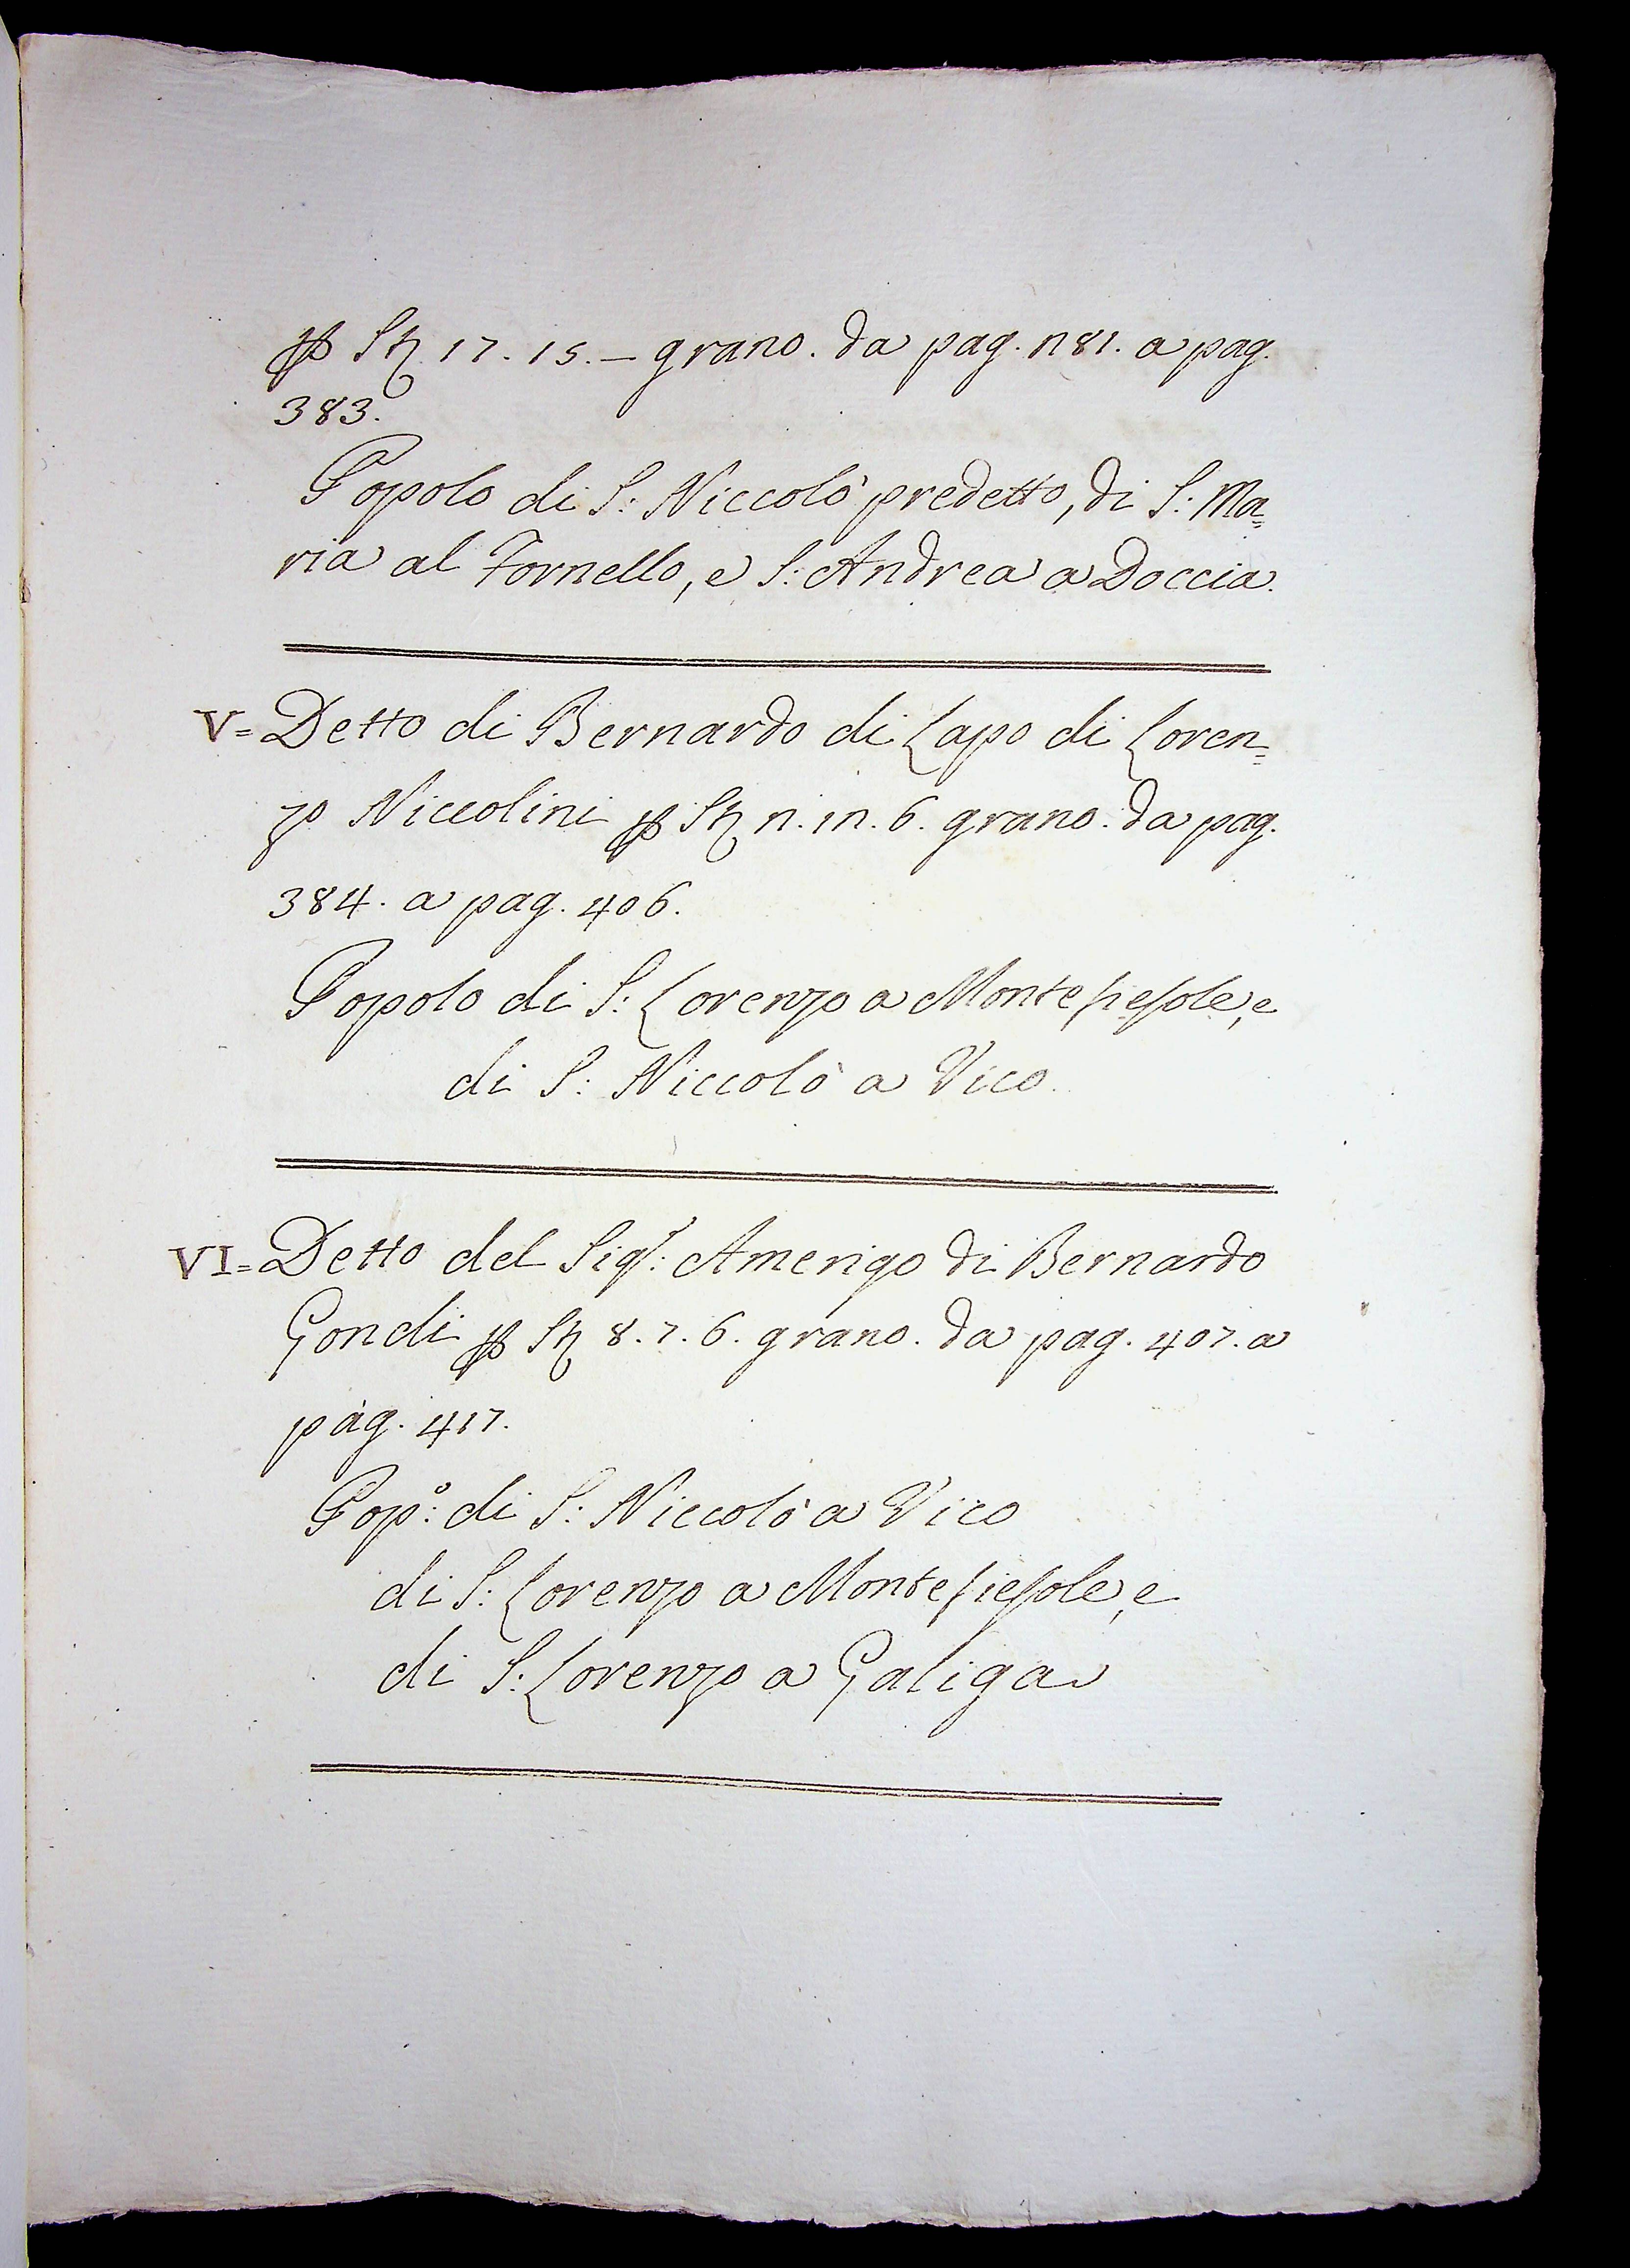 p St 17. 15. – grano. da pag. 281. a pag.
383.
Popolo di S: Niccolò predetto, di S: Ma=
ria al Fornello, e S: Andrea a Doccia.
V= Detto di Bernardo di Lapo di Loren=
zo Niccolini p St 2. 12. 6. grano. da pag.
384. a pag. 406.
Popolo di S: Lorenzo a Montefiesole, e
di S: Niccolò a Vico.
VI= Detto del Sigr: Amerigo di Bernardo
Gondi p St 8. 7. 6. grano. da pag. 407. a
pag. 417.
Popo: di S: Niccolò a Vico
di S: Lorenzo a Montefiesole, e
di S: Lorenzo a Galiga